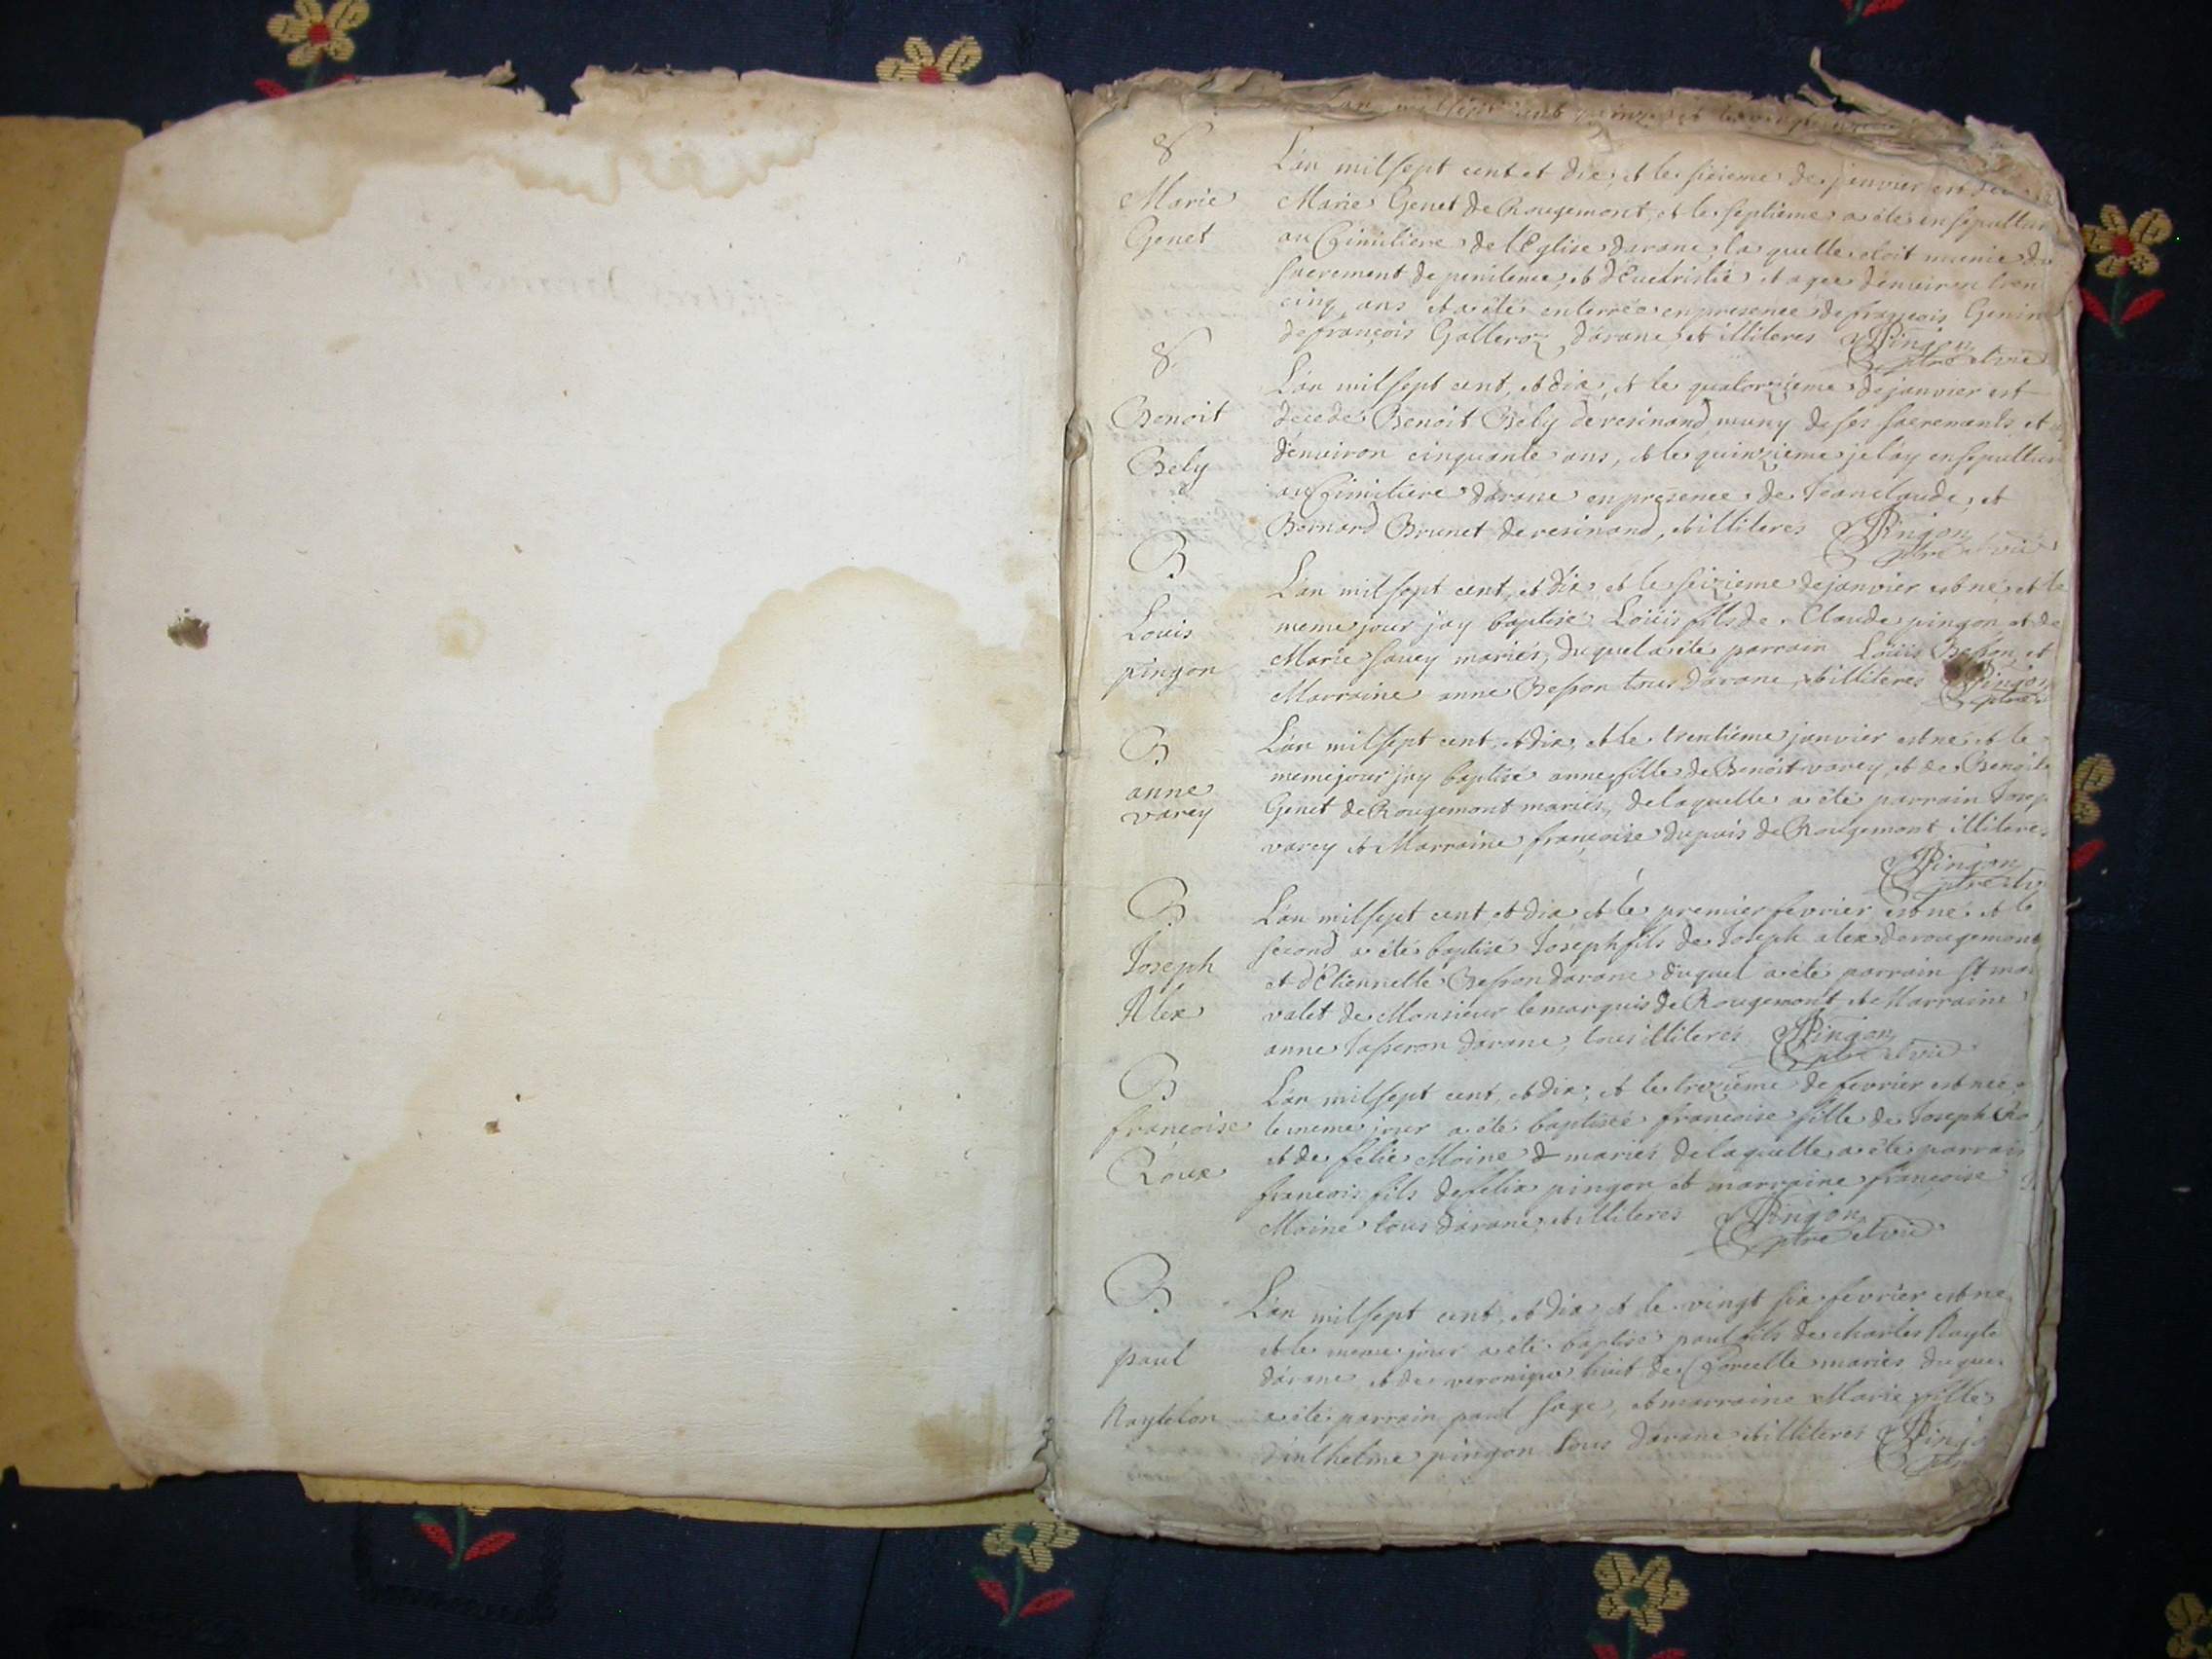 S
Marie
Genet
L'an mil sept cent et dix, et le sixieme de janvier est
Marie Genet de Rougemont, et le septieme a été ensepultur
au Cimitiere de l'Eglise darane, la quelle etoit munie du
sacrement de penitence, et d'Eucharistie et agee d'environ tren
cinq ans et a été enterrée en presence de françois Genin
de françois Galleroz, darane, et illiteres Pingon
ptre et vic
S
Benoit
Bely
L'an mil sept cent, et dix, et le quatorzieme de janvier est
decede Benoit Bely de resinand muny de ses sacrements et
d'environ cinquante ans, et le quinzieme je lay ensepultur
au Cimitiere darane en presence de Jean claude, et
Bernard Brunet de resinand, et illiteres Pingon
ptre et vic
B
Louis
pingon
L'an mil sept cent, et dix, et le seizieme de janvier est né, et le
meme jour jay baptisé Loüis fils de Claude pingon et de
Marie savey mariés, duquel a été parrain Loüis Besson, et
Marraine anne Besson tous darane, et illiteres Pingon
ptre
B
anne
varey
L'an mil sept cent, et dix, et le trentieme janvier est né et le
meme jour jay baptisé anne fille de Benoit varey, et de Benoite
Genet de Rougemont mariés, de laquelle a été parrain Josep
varey et Marraine françoise dupuis de Rougemont illiteres
Pingon
ptre et v
B
Joseph
Alex
L'an mil sept cent, et dix et le premier fevrier est né et le
second a été baptisé Joseph fils de Joseph alex de rougemont
et d'Etiennette Besson darane duquel a été parrain St mar
valet de Monsieur le marquis de Rougemont et Marraine
anne Tasseron darane, tous illiteres Pingon
ptre et vic
B
françoise
Roux
L'an mil sept cent, et dix, et le trezieme de fevrier est née
le meme jour a été baptisée françoise fille de Joseph Ro
et de felie Moine & mariés de laquelle a été parrain
francois fils de felix pingon et marraine françoise
Moine tous darane, et illiteres Pingon
ptre et vic
B
paul
Raytelon
L'an mil sept cent, et dix, et le vingt six fevrier est né
et le meme jour a été baptisé paul fils de charles Rayte
darane et de veronique de Corcelle mariés duque
a été parrain paul sage, et marraine Marie fille
d'anthelme pingon tous darane et illiteres Pingo